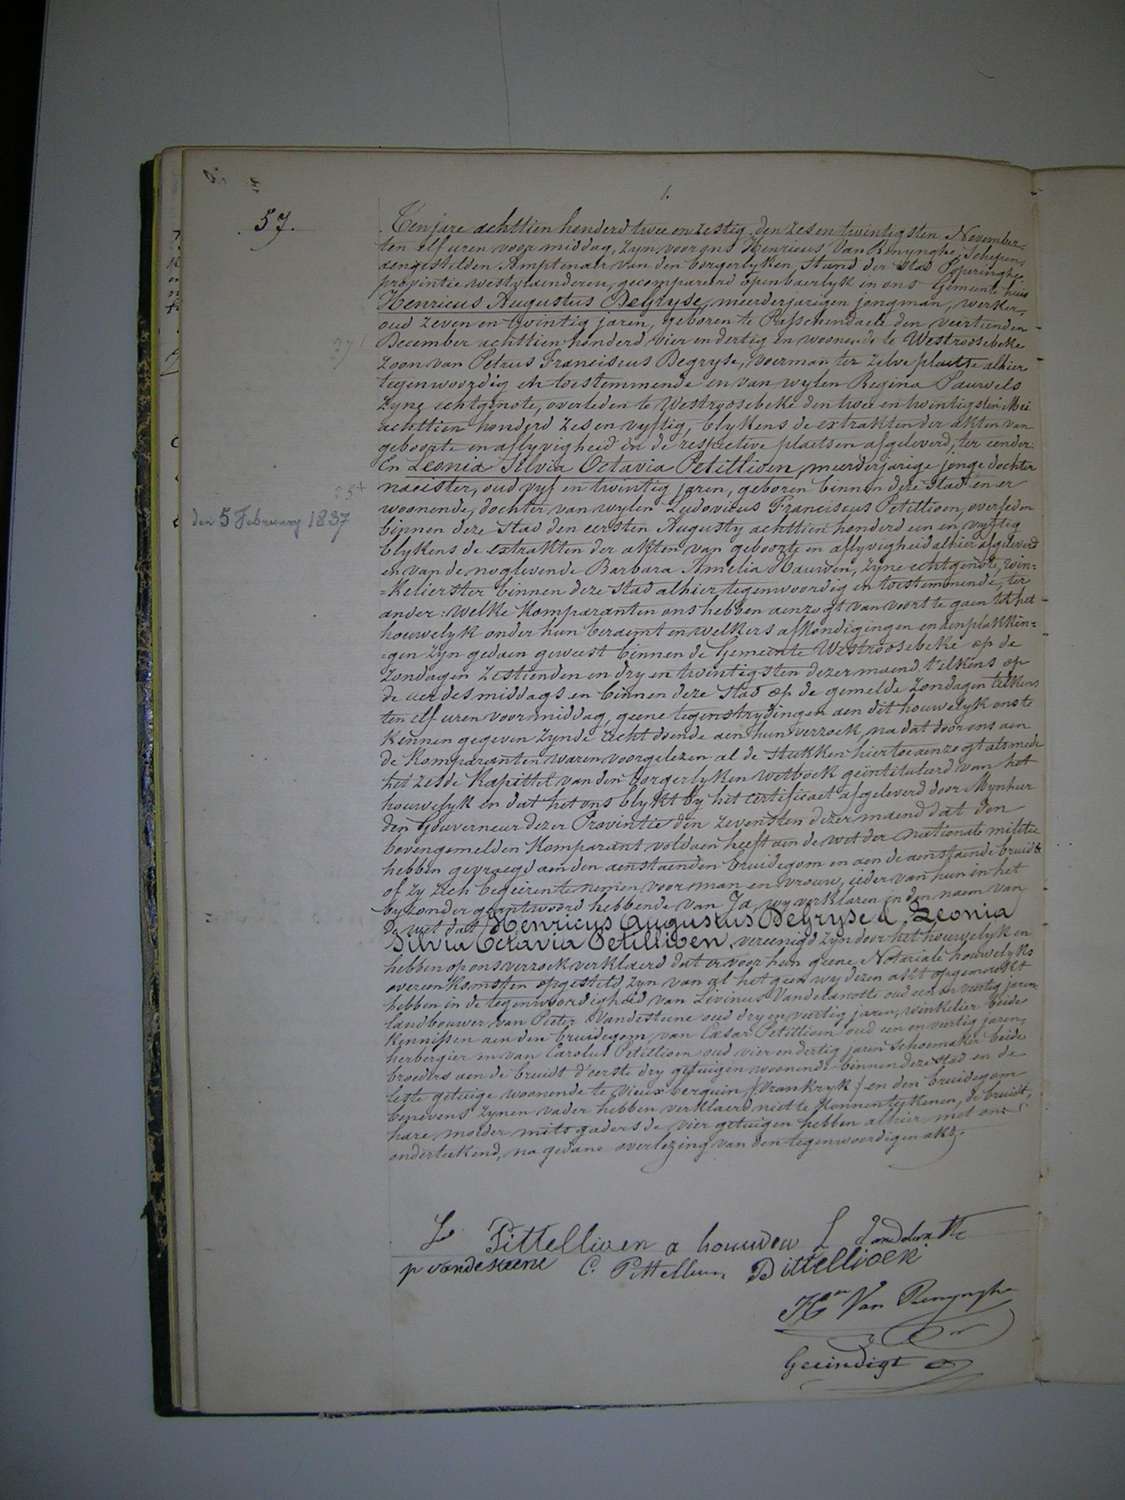 1.
57.
Ten jare achttien honderd twee en zestig den zes en twintigsten November
ten elf uren voor middag, zyn voor ons Henricus Van Renynghe Schepen,
aengestelden Amptenaer van den borgerlyken stand der stad Poperinghe
provintie westvlaenderen, gecompareerd openbaerlyk in ons Gemeente huis
Henricus Augustus Degryse, meerderjarigen jongman, werker,
oud zeven en twintig jaren, geboren te Passchendaele den veertienden
December achttien honderd vier en dertig en woonende te Westroosebeke
zoon van Petrus Franciscus Degryse, voerman ter zelve plaetse alhier
tegenwoordig en toestemmende en van wylen Regina Pauwels
zyne echtgenote, overleden te Westroosebeke den twee en twintigsten Mei
achttien honderd zes en vyftig, blykens de extrakten der akten van
geboorte en aflyvigheid in de respective plaetsen afgeleverd, ter eender.
En Leonia Silvia Octavia Petillioen, meerderjarige jonge dochter
naeister, oud vyf en twintig jaren, geboren binnen deze stad en er
woonende, dochter van wylen Ludovicus Franciscus Petillioen, overleden
den 5 February 1837
binnen deze stad den eersten Augusty achttien honderd een en vyftig
blykens de extrakten der akten van geboorte en aflyvigheid alhier afgeleverd
en van de nog levende Barbara Amelia Hauwen, zyne echtgenote, win-
=kelierster binnen deze stad alhier tegenwoordig en toestemmende, ter
ander: welke komparanten ons hebben aenzogt van voort te gaen tot het
houwelyk onder hun beraemt en welkers afkondigingen en aenplakkin=
=gen zyn gedaen geweest binnen de Gemeente Westroosebeke op de
zondagen zestienden en dry en twintigsten dezer maend telkens op
de uer des middags en binnen deze stad op de gemelde zondagen telkens
ten elf uren voormiddag, geene tegenstrydingen aen dit houwelyk ons te
kennen gegeven zynde recht doende aen hun verzoek, na dat door ons aen
de komparanten waren voorgelezen al de stukken hiertoe aenzogt alsmede
het zesde kapittel van den borgerlyken wetboek geïntituleerd van het
houwelyk en dat het ons blykt by het certificaet afgeleverd door Mynheer
den Gouverneur dezer Provintie den zevensten dezer maend dat den
bovengemelden komparant voldaen heeft aen de wet der nationale militie
hebben gevraegd aen den aenstaenden bruidegom en aen de aenstaende bruid
of zy zich begeeren te nemen voor man en vrouw, ieder van hun in het
byzonder geantwoord hebbende van Ja, wy verklaren in den naem van
de wet dat Henricus Augustus Degryse & Leonia
Silvia Octavia Petillioen, vereenigd zyn door het houwelyk en
hebben op ons verzoek verklaerd dat er voor hun geene Notariale houwelyks
overeenkomsten opgesteld zyn van al het geen wy dezen akt opgemaekt
hebben in de tegenwoordigheid van Livinus Vandelanotte oud een en vertig jaren
landbouwer van Pieter Vandesteene oud dry en veertig jaren, winkelier beide
kennissen aen den bruidegom van Cæsar Petillioen oud een en vertig jaren,
herbergier en van Carolus Petillioen oud vier en dertig jaren schoemaker beide
broeders aen de bruidt d'eerste dry getuigen woonende binnen deze stad en de
leste getuige woonende te Vieux berquin (Vrankryk) en den bruidegom
benevens zynen vader hebben verklaerd niet te kennen teekenen, de bruidt,
hare moeder mitsgaders de vier getuigen hebben alhier met ons
onderteekend, na gedane overlezing van den tegenwoordigen akt.
L Pittellioen a houwen L Vandelanotte
p vandesteene C. Pittellioen Pittellioen
H Van Renynghe
Geeindigt